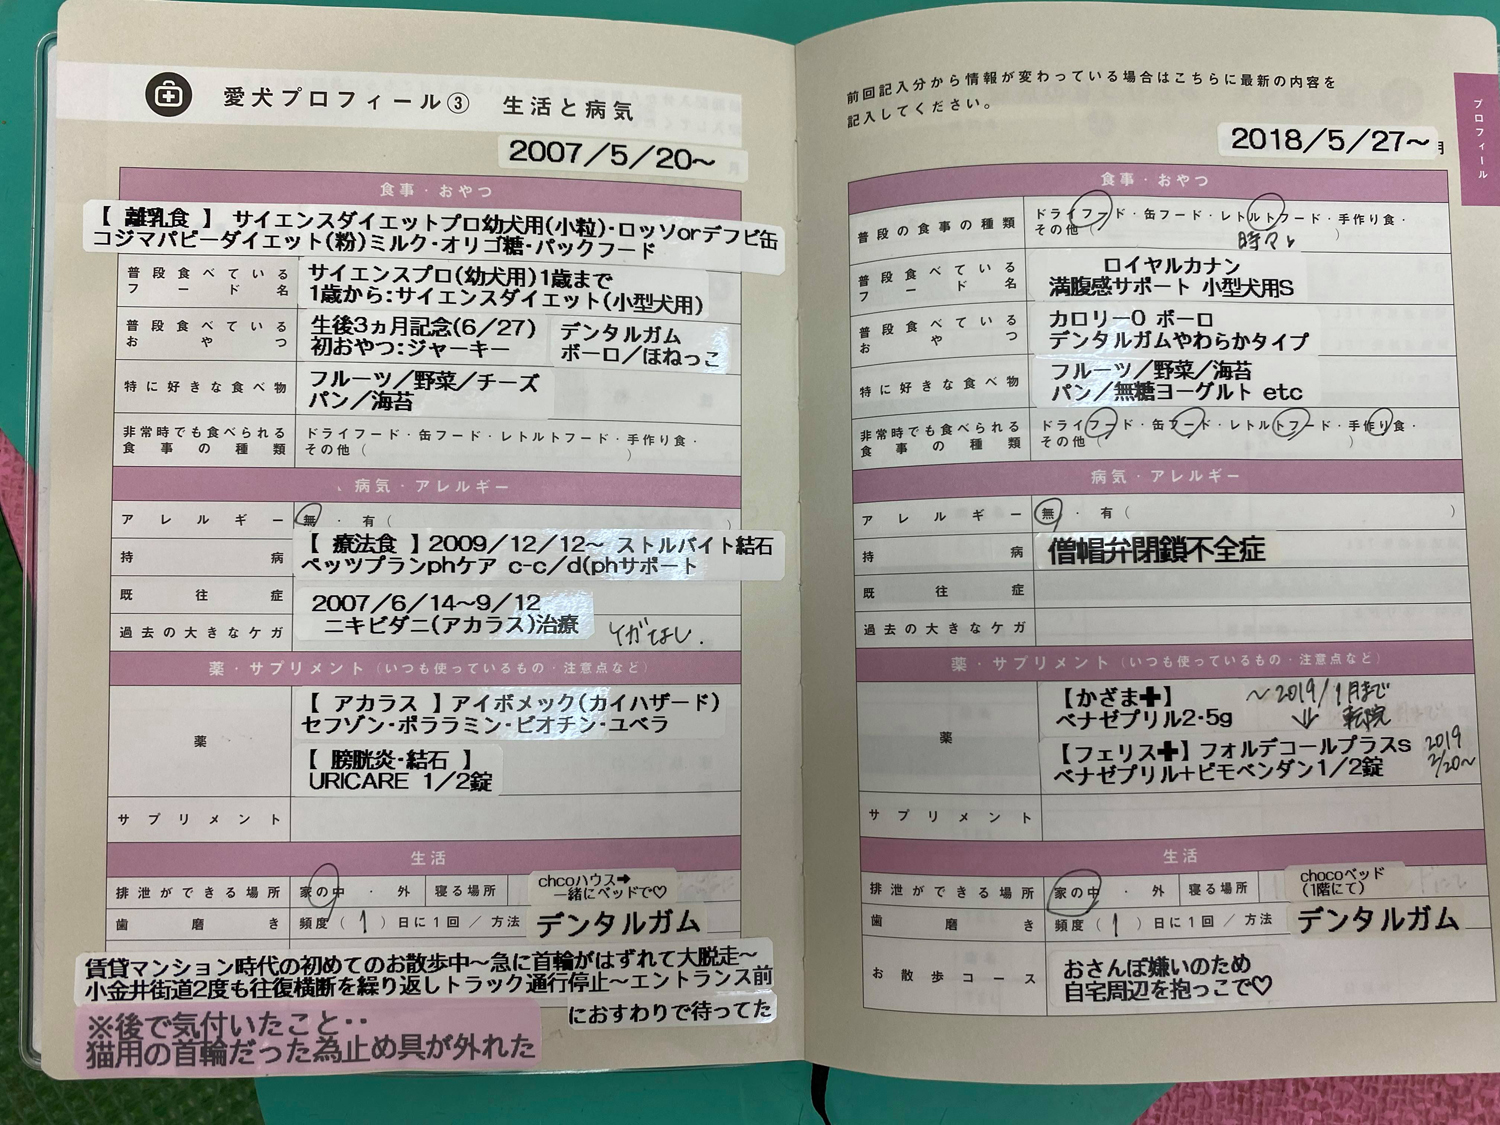 愛犬プロフィール③ 生活と病気
2007/5/20～
食事・おやつ
【 離乳食 】 サイエンスダイエットプロ幼犬用(小粒)・ロッソorデフビ缶
コジマパピーダイエット(粉)ミルク・オリゴ糖・パックフード
普段食べている
フード名
サイエンスプロ(幼犬用)1歳まで
1歳から:サイエンスダイエット(小型犬用)
普段食べている
おやつ
生後3ヵ月記念(6/27)
初おやつ:ジャーキー
デンタルガム
ボーロ/ほねっこ
特に好きな食べ物
フルーツ/野菜/チーズ
パン/海苔
非常時でも食べられる
食事の種類
ドライフード・缶フード・レトルトフード・手作り食・
その他( )
病気・アレルギー
アレルギー
無・有(
)
持病
【 療法食 】2009/12/12～ ストルバイト結石
ペッツプランphケア c-c/d(phサポート
既往症
2007/6/14～9/12
ニキビダニ(アカラス)治療
過去の大きなケガ
ケガなし.
薬・サプリメント(いつも使っているもの・注意点など)
薬
【 アカラス 】アイボメック(カイハザード)
セフゾン・ポララミン・ビオチン・ユベラ
【 膀胱炎・結石 】
URICARE 1/2錠
サプリメント
生活
排泄ができる場所
家の中・外
寝る場所
chcoハウス➡
一緒にベッドで♡
歯磨き
頻度(1)日に1回/方法
デンタルガム
賃貸マンション時代の初めてのお散歩中～急に首輪がはずれて大脱走～
小金井街道2度も往復横断を繰り返しトラック通行停止～エントランス前
におすわりで待ってた
※後で気付いたこと‥
猫用の首輪だった為止め具が外れた
前回記入分から情報が変わっている場合はこちらに最新の内容を
記入してください。
2018/5/27～
月
プロフィール
食事・おやつ
普段の食事の種類
ドライフード・缶フード・レトルトフード・手作り食・
その他( )
時々
普段食べている
フード名
ロイヤルカナン
満腹感サポート 小型犬用S
普段食べている
おやつ
カロリー0 ボーロ
デンタルガムやわらかタイプ
特に好きな食べ物
フルーツ/野菜/海苔
パン/無糖ヨーグルト etc
非常時でも食べられる
食事の種類
ドライフード・缶フード・レトルトフード・手作り食・
その他( )
病気・アレルギー
アレルギー
無・有(
)
持病
僧帽弁閉鎖不全症
既往症
過去の大きなケガ
薬・サプリメント(いつも使っているもの・注意点など)
薬
【かざま✚】
ベナゼプリル2・5g
～2019/1月まで
↓ 転院
【フェリス✚】フォルデコールプラスs
ベナゼプリル+ピモベンダン1/2錠
2019
2/20～
サプリメント
生活
排泄ができる場所
家の中・外
寝る場所
chocoベッド
(1階にて)
歯磨き
頻度(1)日に1回/方法
デンタルガム
お散歩コース
おさんぽ嫌いのため
自宅周辺を抱っこで♡